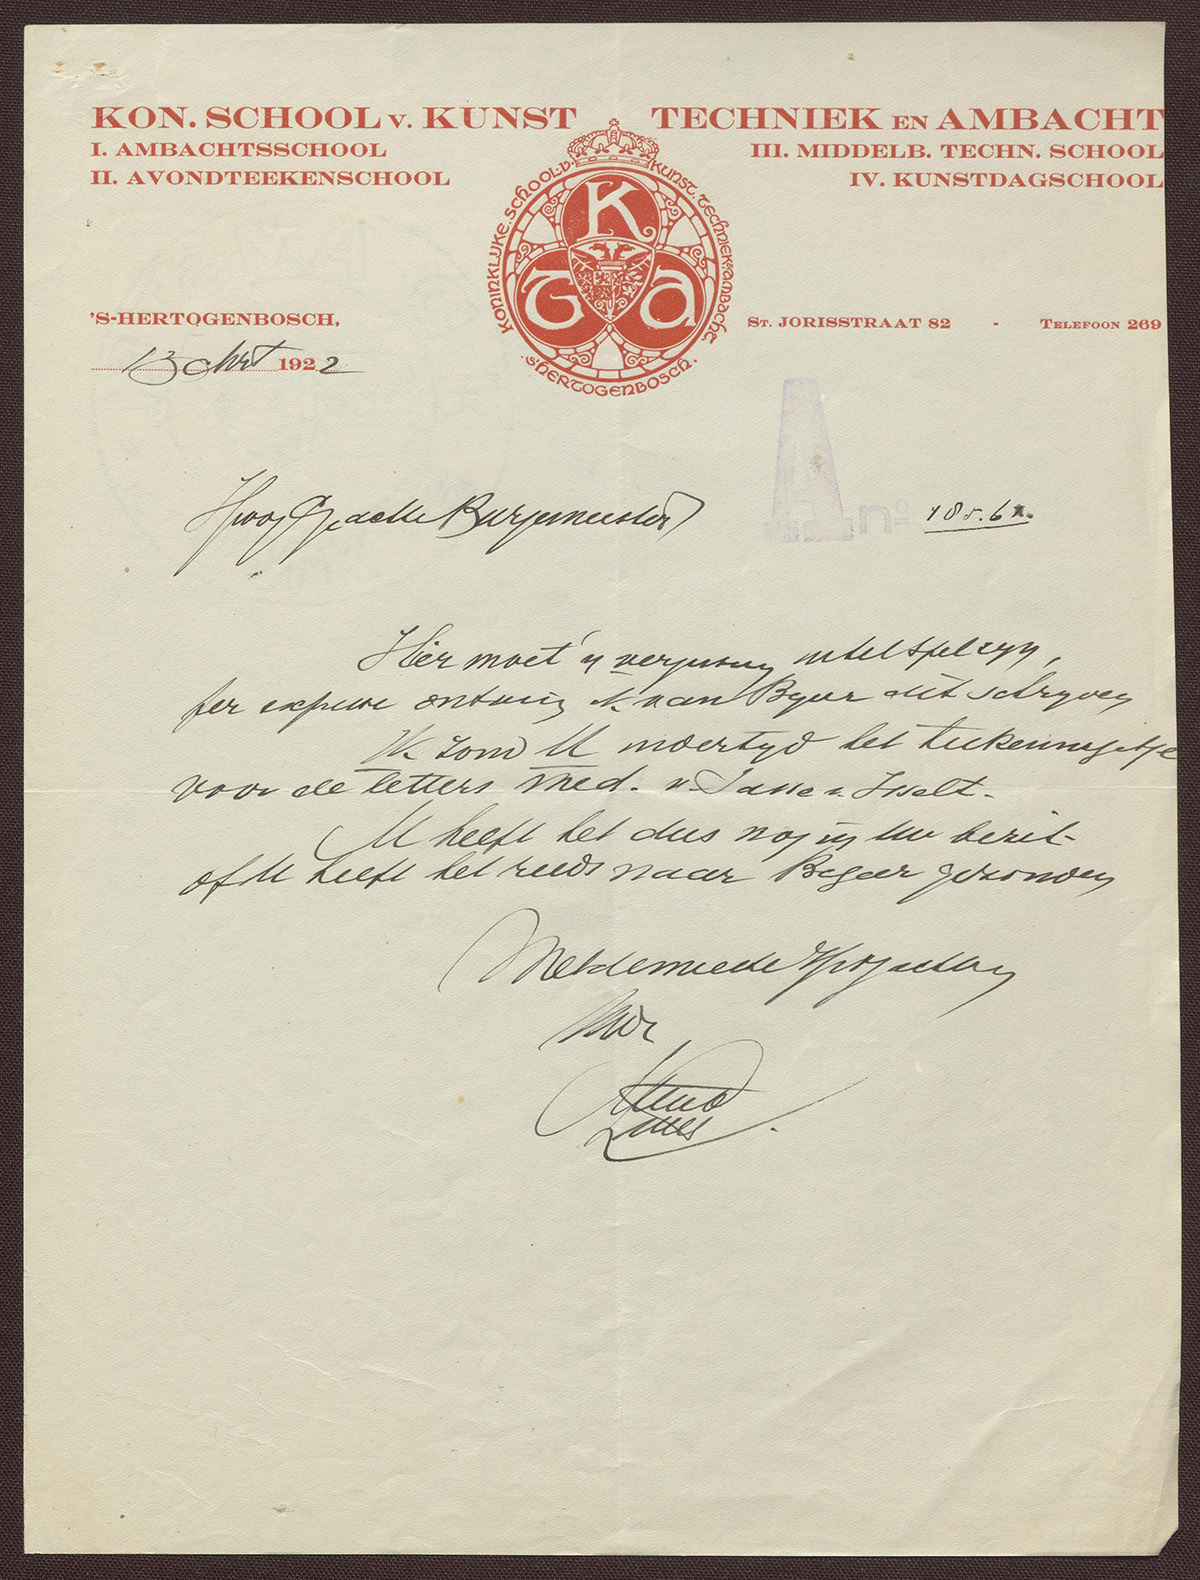 KON. SCHOOL v. KUNST TECHNIEK EN AMBACHT
I. AMBACHTSSCHOOL
II. AVONDTEEKENSCHOOL
III. MIDDELB. TECHN. SCHOOL
IV. KUNSTDAGSCHOOL
KONINKLIJKE SCHOOL V. KUNST. TECHNIEK EN AMBACHT
K
T A
'S HERTOGENBOSCH.
'S-HERTOGENBOSCH,
ST. JORISSTRAAT 82 - TELEFOON 269
13 1922
A no
HoogGeachte Burgemeester
Hier moet 'n vergissing in 't spel zyn,
per expresse ontving k van Byeer dit schryven
Ik zond U indertyd het
voor de letters
U heeft het dus nog in Uw bezit
of U heeft het reeds naar Bejeer gezonden
Met de meeste Hoogachting